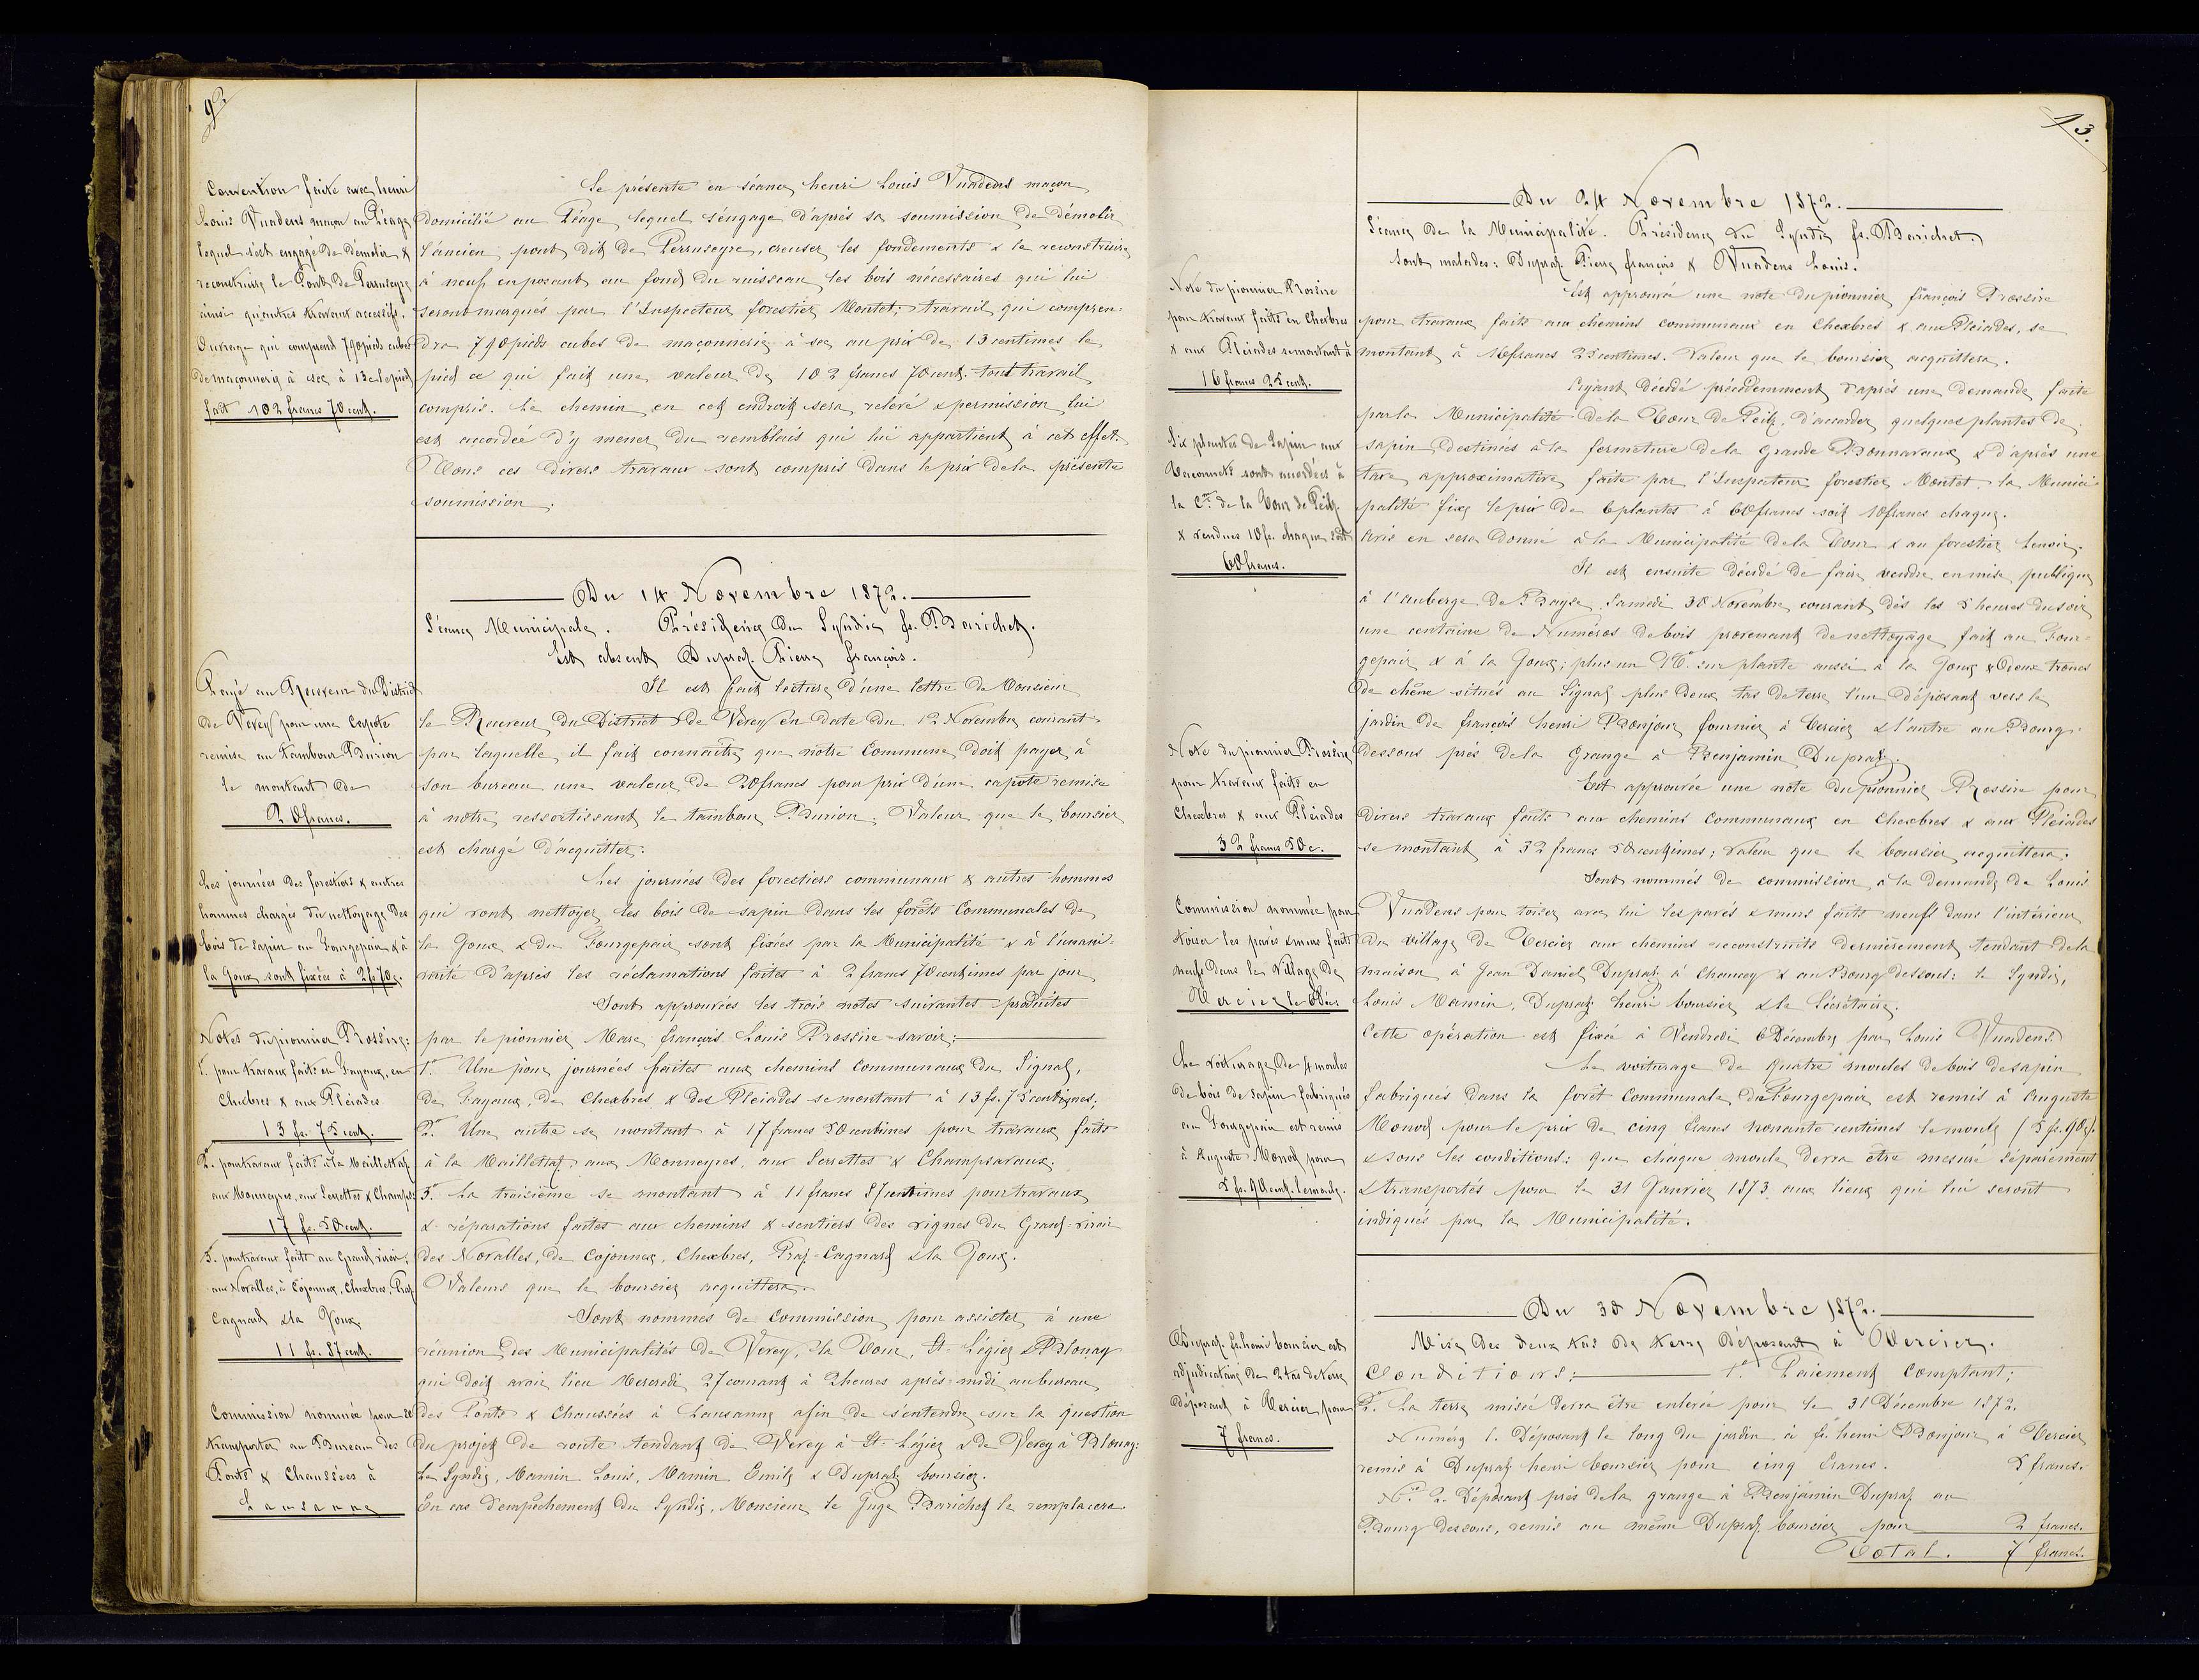 92
Convention faite avec henri
Louis Vuadens maçon au Péage
lequel s'est engagé de démolir &
reconstruire le Pont de Perruseyre
ainsi qu'autres travaux accessifs.
Ouvrage qui comprend 790 pieds cubes
de maçonnerie à sec à 13 c. le pied
fait 102 francs 70 cent.
Se présente en séance henri Louis Vuadens maçon
domicilié au Péage lequel s'engage d'après sa soumission de démolir
l'ancien pont dit de Perruseyre, creuser les fondements & le reconstruire
à neuf en posant au fond du ruisseau les bois nécessaires qui lui
seront marqués par l'Inspecteur forestier Montet; travail qui compren-
dra 790 pieds cubes de maçonnerie à sec au prix de 13 centimes le
pied ce qui fait une valeur de 102 francs 70 cent. tout travail
compris. Le chemin en cet endroit sera relevé & permission lui
est accordée d'y mener du remblais qui lui appartient à cet effet.
Tous ces divers travaux sont compris dans le prix de la présente
soumission.
Du 14 Novembre 1872.
Séance Municipale. Présidence du Syndic fs. Barichet.
Est absent Dupraz Pierre françois.
Payé au Receveur du District
de Vevey pour une Capote
remise au tambour Burion
le montant de
20 francs.
Il est fait lecture d'une lettre de Monsieur
le Receveur du District de Vevey en date du 12 Novembre courant
par laquelle il fait connaître que notre Commune doit payer à
son bureau une valeur de 20 francs pour prix d'une capote remise
à notre ressortissant le tambour Burion. Valeur que le boursier
est chargé d'acquitter.
Les journées des forestiers & autres
hommes chargés du nettoyage des
bois de sapin au Fourgepair & à
la Goux sont fixées à 2 fs 70 c.
Les journées des forestiers communaux & autres hommes
qui vont nettoyer les bois de sapin dans les forêts Communales de
la Goux & du Fourgepair sont fixées par la Municipalité & à l'unani-
mité d'après les réclamations faites à 2 francs 70 centimes par jour
Sont approuvées les trois notes suivantes produites
Notes du pionnier Rossire:
1. pour travaux faits en Fayaux, en
Chexbres & aux Pléiades
13 fs. 75 cent.
2. pour travaux faits à la Maillettaz
aux Monneyres, aux Serrettes & Champs:
17 fs. 50 cent.
3. pour travaux faits au Grand vivier,
aux Novalles, à Cojonnex, Chexbres, Praz
Cagnard & la Goux
11 fs. 87 cent.
par le pionnier Marc françois Louis Rossire savoir:
1º. Une pour journées faites aux chemins Communaux du Signal,
de Fayaux, de Chexbres & des Pleiades se montant à 13 fs. 75 centimes;
2º. Une autre se montant à 17 francs 50 centimes pour travaux faits
à la Maillettaz, aux Monneyres, aux Serrettes & Champsavaux.
3º. La troisième se montant à 11 francs 87 centimes pour travaux
& réparations faites aux chemins & sentiers des vignes du Grand-vivier
des Novalles, de Cojonnex, Chexbres, Praz-Cagnard & la Goux.
Valeurs que le boursier acquittera.
Sont nommés de Commission pour assister à une
réunion des Municipalités de Vevey, la Tour, St. Légier & Blonay
qui doit avoir lieu Mercredi 27 courant à 2 heures après-midi au bureau
des Ponts & Chaussées à Lausanne afin de s'entendre sur la question
du projet de route tendant de Vevey à St. Légier & de Vevey à Blonay:
Le Syndic, Mamin Louis, Mamin Emile & Dupraz boursier.
En cas d'empêchement du Syndic, Monsieur le Juge Barichet le remplacera.
Commission nommée pour se
transporter au Bureau des
Ponts & Chaussées à
Lausanne
93.
Du 24 Novembre 1872.
Séance de la Municipalité. Présidence du Syndic fs. Barichet.
Sont malades: Dupraz Pierre françois & Vuadens Louis.
Note du pionnier Rossire
pour travaux faits en Chexbres
& aux Pléiades se montant à
16 francs 25 cent.
Est approuvée une note du pionnier françois Rossire
pour travaux faits aux chemins communaux en Chexbres & aux Pleiades, se
montant à 16 francs 25 centimes. Valeur que le boursier acquittera.
Six plantes de Sapin aux
sont accordées à
la Cne. de la Tour de Peilz.
& vendues 10 fs. chaque soit
60 francs.
Ayant décidé précédemment d'après une demande faite
par la Municipalité de la Tour de Peilz, d'accorder quelques plantes de
sapin destinées à la fermeture de la grande Bonnavaux & d'après une
taxe approximative faite par l'Inspecteur forestier Montet la Munici
palité fixe le prix de 6 plantes à 60 francs soit 10 francs chaque.
Avis en sera donné à la Municipalité de la Tour & au forestier Genoir.
Il est ensuite décidé de faire vendre en mise publique
à l'auberge de Brayse, Samedi 30 Novembre courant dès les 5 heures du soir
une centaine de Numéros de bois provenant de nettoyage fait au Four-
gepair & à la Goux; plus un Nº. sur plante aussi à la Goux & deux troncs
de chêne situés au Signal plus deux tas de terre l'un déposant vers le
jardin de françois henri Bonjour fournier à Tercier & l'autre au Bourg-
dessous près de la Grange à Benjamin Dupraz.
Note du pionnier Rossire
pour travaux faits en
Chexbres & aux Pléiades
32 francs 50 c.
Est approuvée une note du pionnier Rossire pour
divers travaux faits aux chemins communaux en Chexbres & aux Pléiades
se montant à 32 francs 50 centimes; valeur que le boursier acquittera.
Commission nommée pour
toiser les pavés & murs faits
neufs dans le Village de
Tercier le 6 Déc.
Sont nommés de commission à la demande de Louis
Vuadens pour toiser avec lui les pavés & murs faits neufs dans l'intérieur
du village de Tercier aux chemins reconstruits dernièrement tendant de la
maison à Jean Daniel Dupraz à Chaucey & au Bourg dessous: le Syndic,
Louis Mamin, Dupraz henri boursier & le Secrétaire.
Cette opération est fixée à Vendredi 6 Décembre par Louis Vuadens.
Le voiturage de 4 moules
de bois de sapin fabriqués
au Fourgepair est remis
à Auguste Monod pour
5 fs. 90 cent. le moule.
Le voiturage de quatre moules de bois de sapin
fabriqués dans la forêt Communale du Fourgepair est remis à Auguste
Monod pour le prix de cinq francs nonante centimes le moule (5 fs. 90 c).
& sous les conditions: que chaque moule devra être mesuré séparément
& transportés pour le 31 Janvier 1873 aux lieux qui lui seront
indiqués par la Municipalité.
Du 30 Novembre 1872.
Mise des deux tas de terre déposant à Tercier.
Dupraz fs. henri boursier est
adjudicataire de 2 tas de terre
déposant à Tercier pour
7 francs.
Conditions: 1º. Paiement Comptant;
2º. La terre misée devra être enlevée pour le 31 Décembre 1872.
Numéro 1. Déposant le long du jardin à fs. henri Bonjour à Tercier
remis à Dupraz henri boursier pour cinq francs. 5 francs.
No. 2. Déposant près de la grange à Benjamin Dupraz au
Bourg dessous, remis au même Dupraz boursier pour 2 francs.
Total. 7 francs.